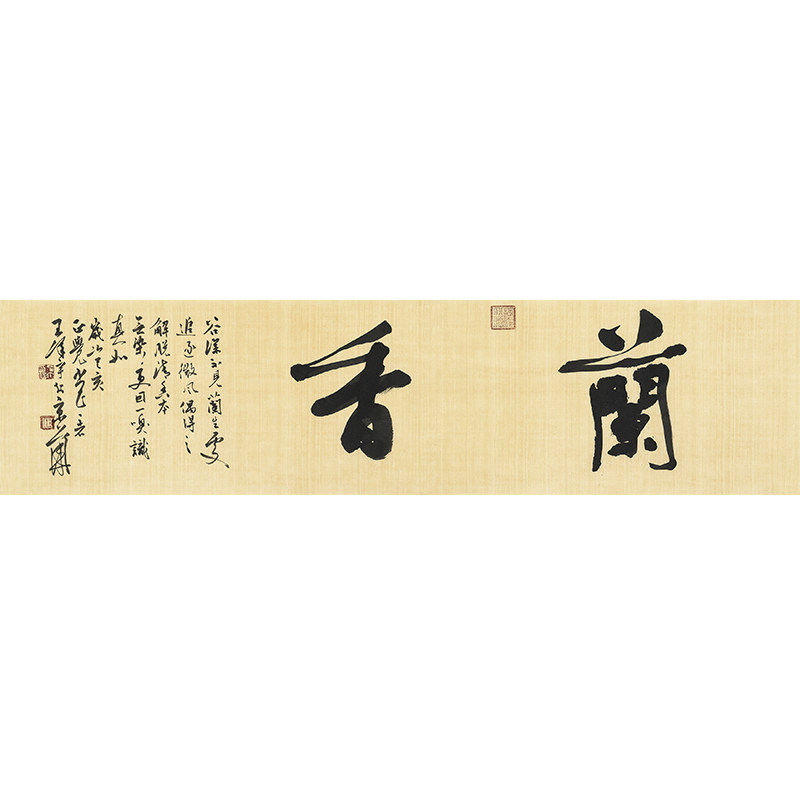 蘭香
谷深不見蘭生處
追逐微風偶得之
解脫清香本
無染更因一嗅識
真如
歲次亥
正覺書
王